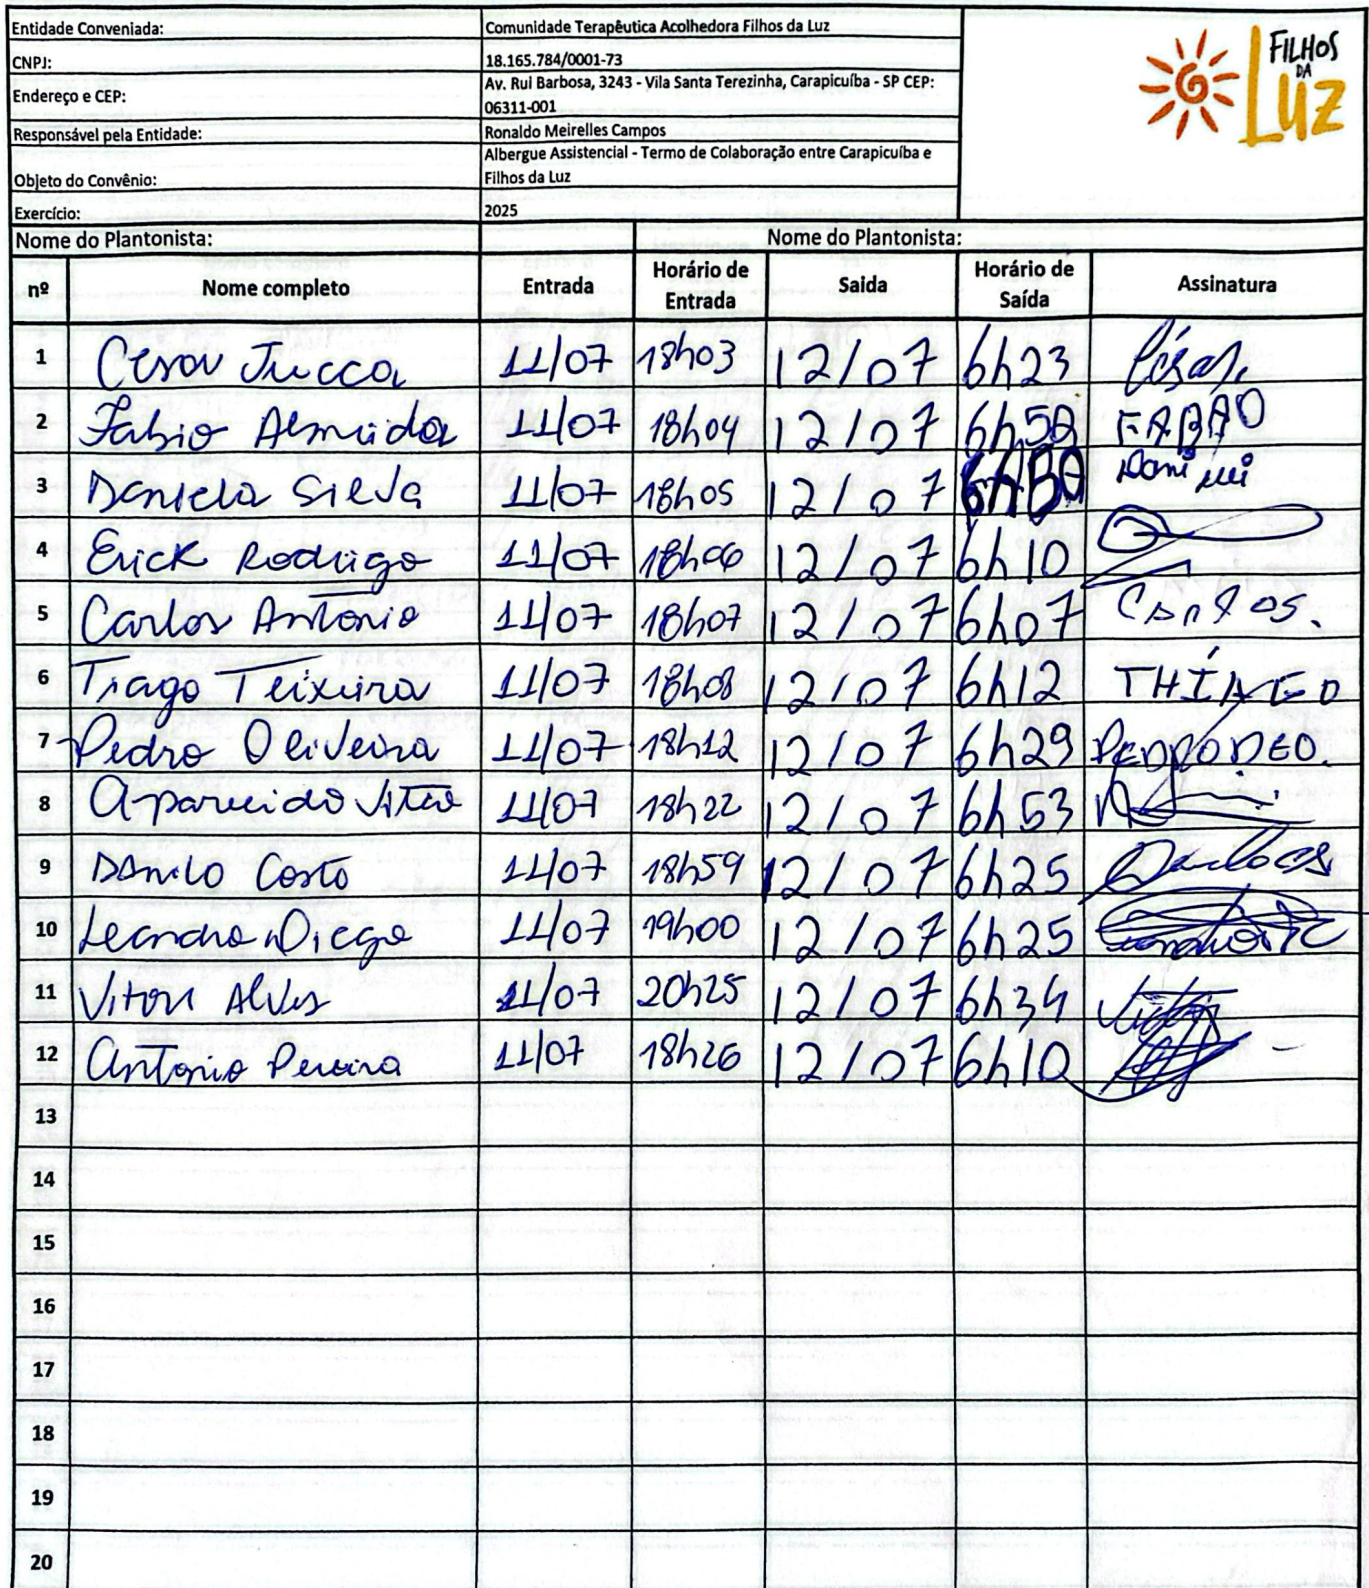 Entidade Conveniada: Comunidade Terapêutica Acolhedora Filhos da Luz
CNPJ: 18.165.784/0001-73
Endereço e CEP: Av. Rui Barbosa, 3243 - Vila Santa Terezinha, Carapicuíba - SP CEP:
06311-001
Responsável pela Entidade: Ronaldo Meirelles Campos
Objeto do Convênio: Albergue Assistencial - Termo de Colaboração entre Carapicuíba e
Filhos da Luz
Exercício: 2025
FILHOS
DA
LUZ
Nome do Plantonista: Nome do Plantonista:
nº Nome completo Entrada Horário de Entrada Saida Horário de Saída Assinatura
1 Cesar Jucca 11/07 18h03 12/07 6h23 César
2 Fabio Almeida 11/07 18h04 12/07 6h50 FABÃO
3 Daniela Silva 11/07 18h05 12/07 Dani
4 Erick Rodrigo 11/07 18h06 12/07 6h10
5 Carlos Antonio 11/07 18h07 12/07 6h07 Carlos.
6 Tiago Teixeira 11/07 18h08 12/07 6h12 THÍAGO
7 Pedro Oliveira 11/07 18h12 12/07 6h29
8 Aparecido 11/07 18h22 12/07 6h53
9 Danilo Costa 11/07 18h59 12/07 6h25
10 Leandro Diego 11/07 19h00 12/07 6h25
11 Vitor Alves 11/07 20h25 12/07 6h34
12 Antonio Pereira 11/07 18h26 12/07 6h10
13
14
15
16
17
18
19
20